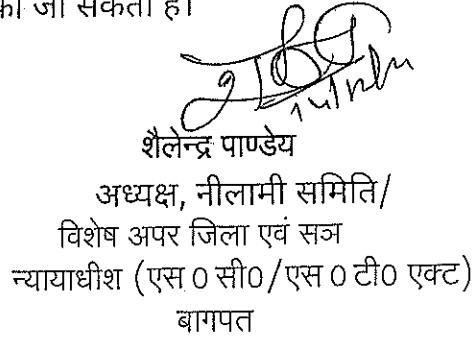 की जा सकती है।
शैलेन्द्र पाण्डेय
अध्यक्ष, नीलामी समिति/
विशेष अपर जिला एवं सञ
न्यायाधीश (एस 0 सी0/एस 0 टी0 एक्ट)
बागपत